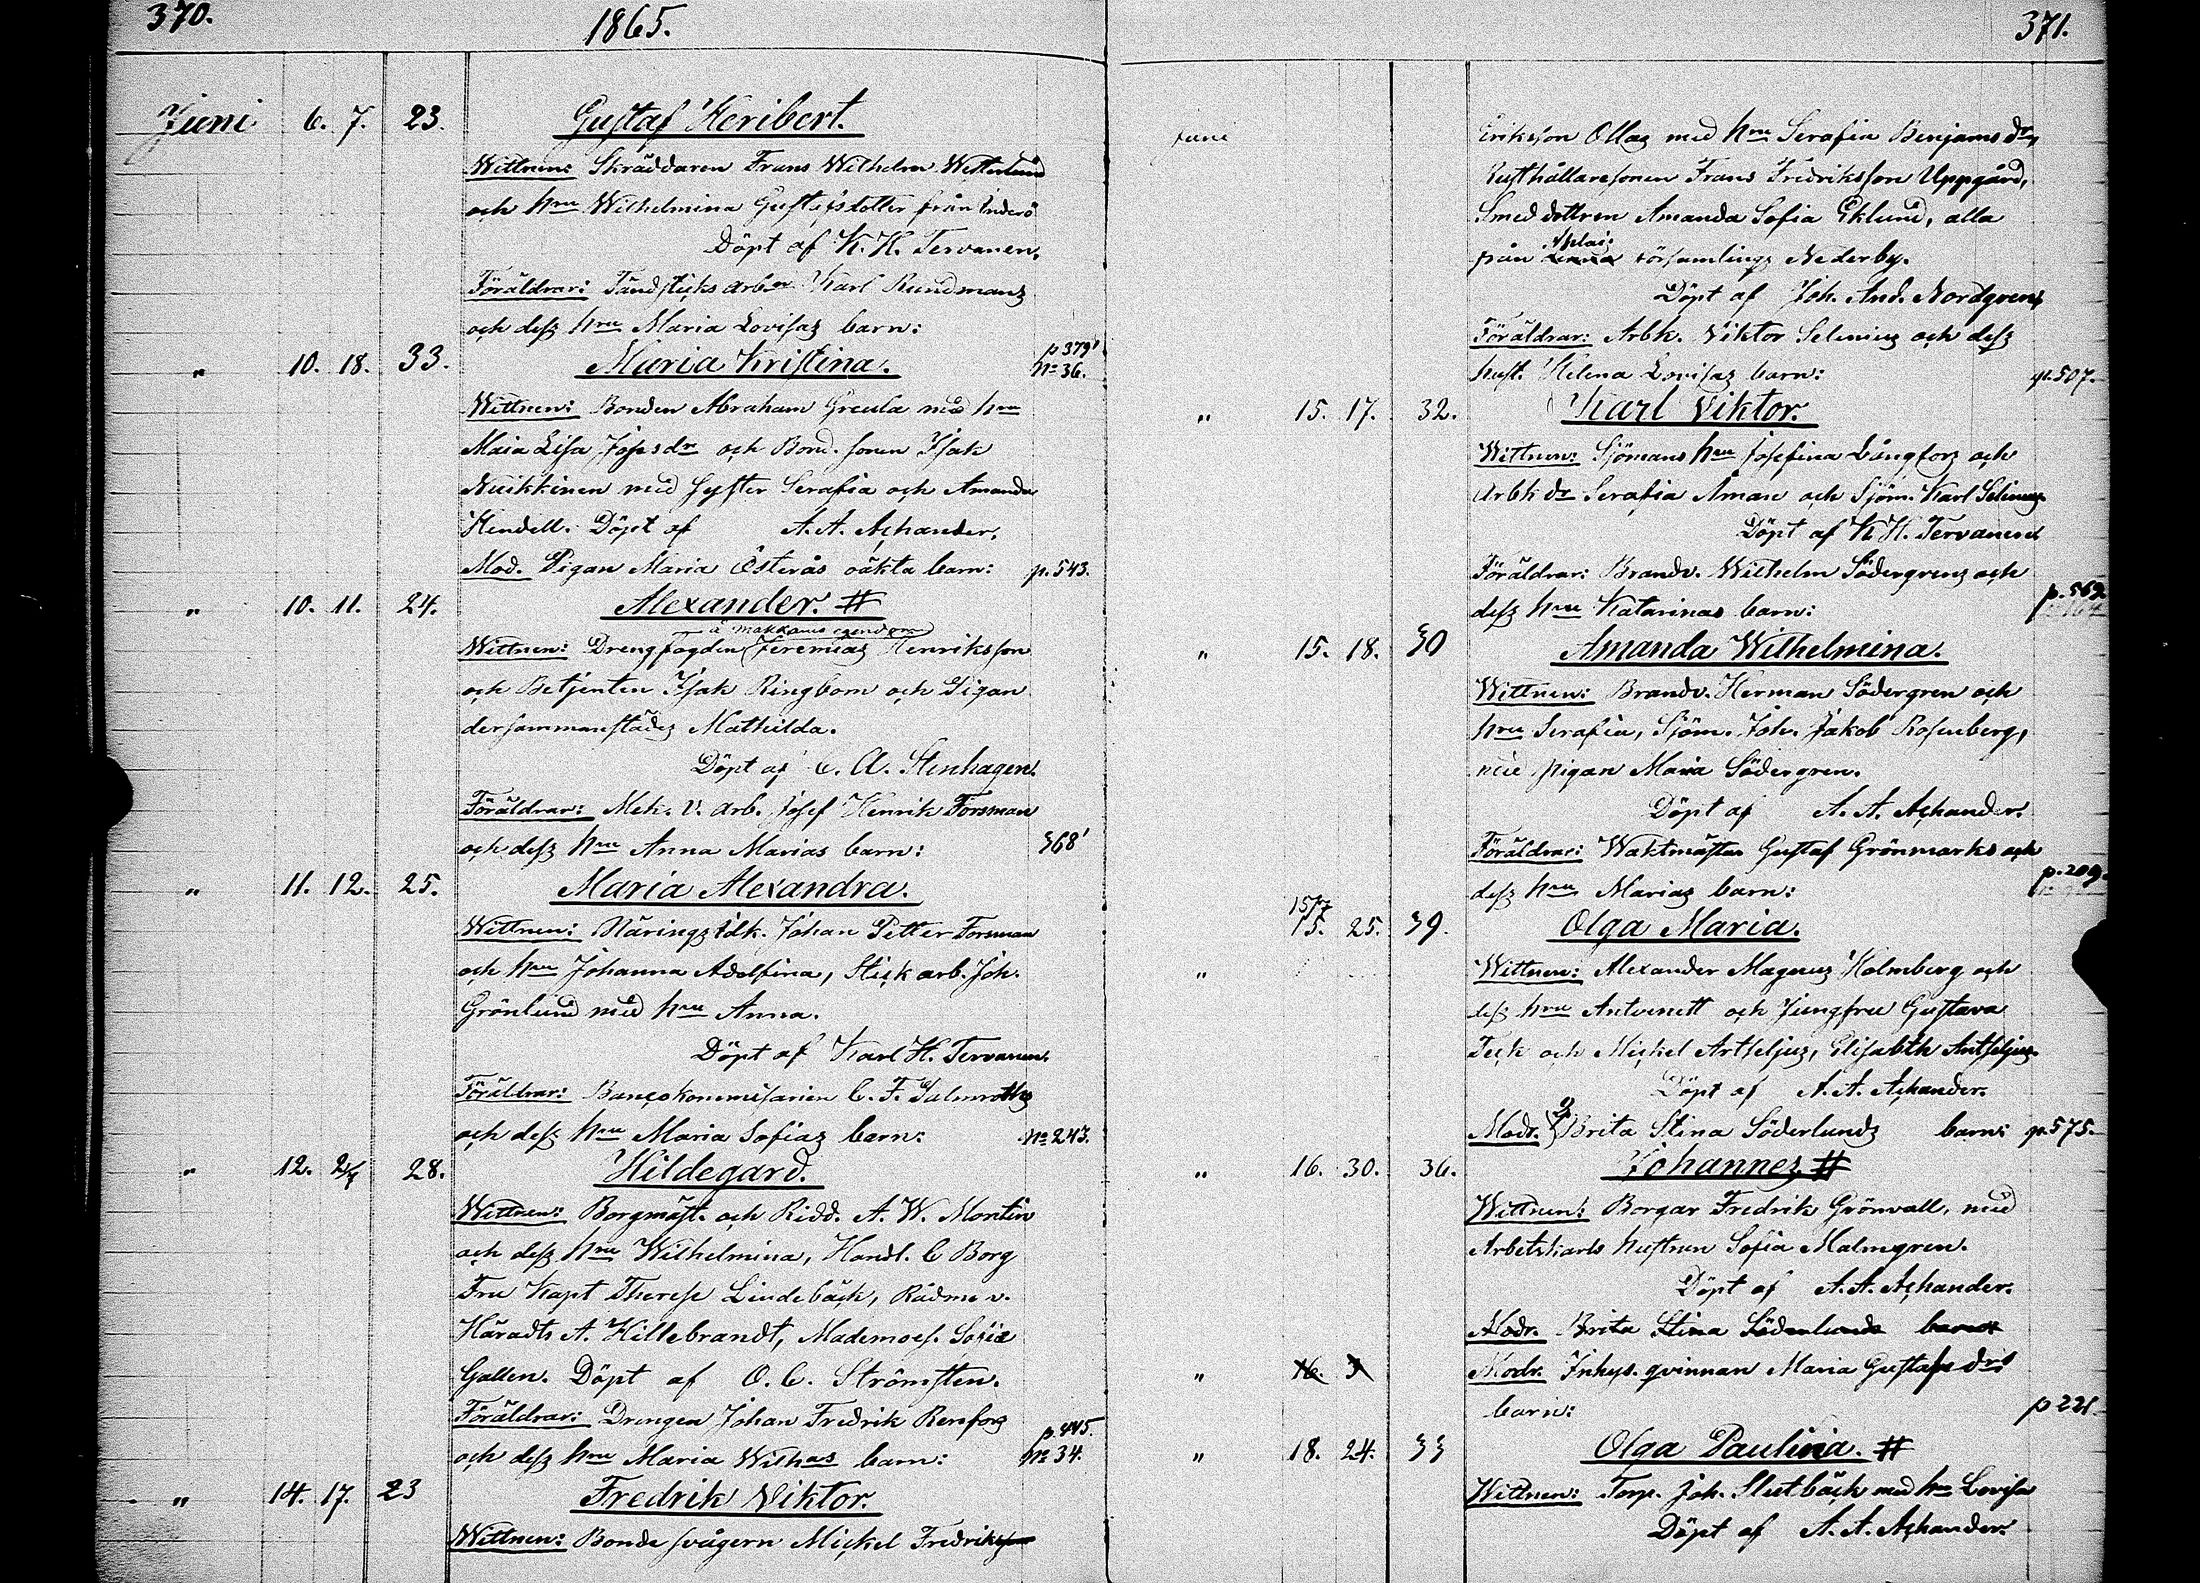 370.
1865.
Juni 6. 7. 23. Gustaf Heribert.
Wittnen: Skräddaren Frans Wilhelm Wetterlund
och hru Wilhelmina Gustafsdotter från
Döpt af K. H. Tervanen.
Föräldrar: Tändsticks arbn Karl Rundmans
och dess hru Maria Lovisas barn:
p 379
" 10. 18. 33. Maria Kristina. No 36.
Wittnen: Bonden Abraham Greula med hru
Maia Lisa dr och Bond. sonen Isak
Nuikkinen med syster Serafia och Amanda
Hendell. Döpt af A. A. Achander.
Mod. Pigan Maria Österås oäkta barn: p. 543.
" 10. 11. 24. Alexander. #
å Makkanis egendom
Wittnen: Drengfogden Jeremias Henriksson
och Betjenten Isak Ringbom och Pigan
dersammanstädes Mathilda.
Döpt af C. A. Stenhagen.
Föräldrar: Mek. V. arb. Josef Henrik Forsman
och dess hru Anna Marias barn: 368
" 11. 12. 25. Maria Alexandra.
Wittnen: Näringsidk. Johan Petter Forsman
och hru Johanna Adolfina, Stick arb. Joh.
Grönlund med hru Anna.
Döpt af Karl H. Tervanen.
Föräldrar: Bancokommisarien C. F. Palmroths
och dess hru Maria Sofias barn: No 243.
" 12. 2/7 28. Hildegard.
Wittnen: Borgmäst. och Ridd. A. W. Montin
och dess hru Wilhelmina, Handl. C Borg
Fru Kapt Therese Lindebäck, Rådm v.
Häradts A. Hillebrandt, Mademoes. Sofia
Gallen. Döpt af O. C. Strömsten.
Föräldrar: Drengen Johan Fredrik Renfors
p. 445.
och dess hru Maria Wilhas barn: No 34.
" 14. 17. 23 Fredrik Viktor.
Wittnen: Bonde svågern Mickel Fredriksson
371.
Juni Eriksson Ollas med hru Serafia Benjamsdr,
Rusthållaresonen Frans Fredriksson Uppgård,
Smed dottren Amanda Sofia Eklund, alla
från församlings Nederby.
Döpt af Joh. And. Nordgren.
Föräldrar: Arbk. Viktor Selenius och dess
hust. Helena Lovisas barn: p. 507.
" 15. 17. 32. Karl Viktor.
Wittnen: Sjömans hru Josefina Långfors och
Arbk dr Serafia Åman och Sjöm. Karl Selenius
Döpt af K H. Tervanen
Föräldrar: Brandv. Wilhelm Södergrens och
dess hru Katarinas barn: p. 562
" 15. 18. 30 Amanda Wilhelmina.
Wittnen: Brandv. Herman Södergren och
hru Serafia, Sjöm. Joh. Jakob Rosenberg,
med pigan Maria Södergren.
Döpt af A. A. Achander.
Föräldrar: Waktmästar Gustaf Grönmarks och
dess hru Marias barn: p. 209.
15/7
" 15. 25. 39. Olga Maria.
Wittnen: Alexander Magnus Holmberg och
dess hru Antoinett och Jungfru Gustava
Teck och Mickel Artseljus, Elisabth Antseljus.
Döpt af A. A. Achander.
Modr. Brita Stina Söderlunds barn: p. 575.
" 16. 30. 36. Johannes #
Wittnen: Borgar Fredrik Grönvall, med
Arbetskarls hustrun Sofia Malmgren.
Döpt af A. A. Achander.
Modr. Brita Stina Söderlunds barn
" 16. 3 Modr. Inhys. qvinnan Maria Gustafs drs
barn: p 221
" 18. 24. 33 Olga Paulina. #
Wittnen: Torp. Joh. Slutbäck med hru Lovisa
Döpt af A. A. Achander.